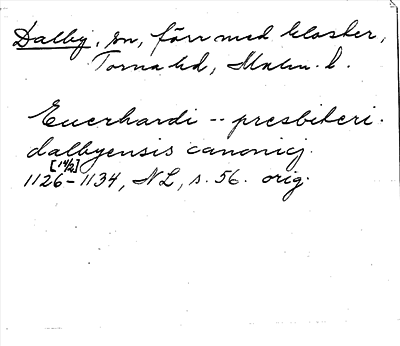 Dalby, sn, förr med kloster,
Torna hd, Malm. l.
Euerhardi -- presbiteri.
dalbyensis canonicj.
[14/2]
1126-1134, NL, s. 56. orig.